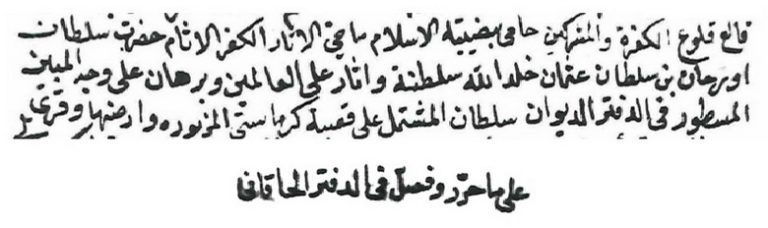 قالع قلوع الكفرة والمشركين حامى بيضة الاسلام ماحى الاثار الكفر الاثام حضرت سلطان
اورخان بن سلطان عثمان خلد الله سلطنة واثار على العالمين وبرهان على وجه المبين
المسطور فى الدفتر الديوان سلطان المشتمل على قصبة كرماستى المزبوره وارضنها وقرى
على ما حرر وفصل فى الدفتر الحاقانى